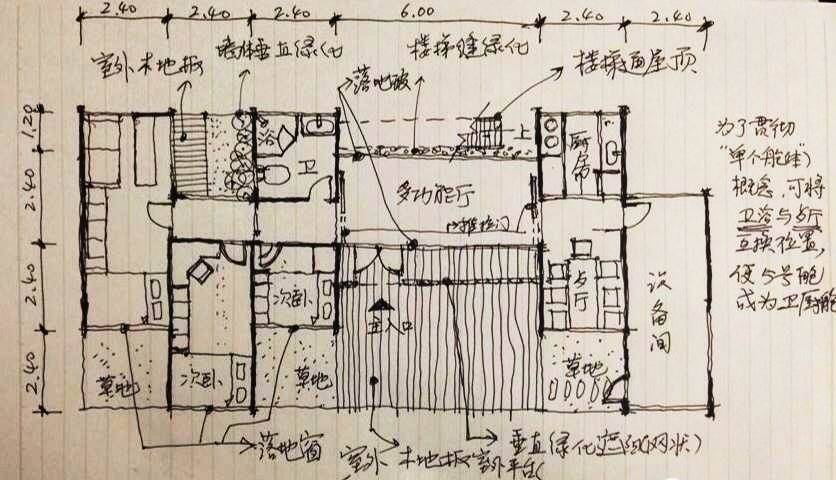 2.40 2.40 2.40 6.00 2.40 2.40
室外木地板
墙体垂直绿化
楼梯缝绿化
楼梯通屋顶
落地玻
1.20
2.40
2.40
2.40
浴
卫
上
厨房
多功能厅
推拉门
次卧
主入口
次卧
餐厅
设备间
草地
草地
草地
落地窗
室外木地板
室外平台
垂直绿化遮阳(网状)
为了贯彻
概念,可将
卫浴与餐厅
互换位置,
使5号舱
成为卫厨舱